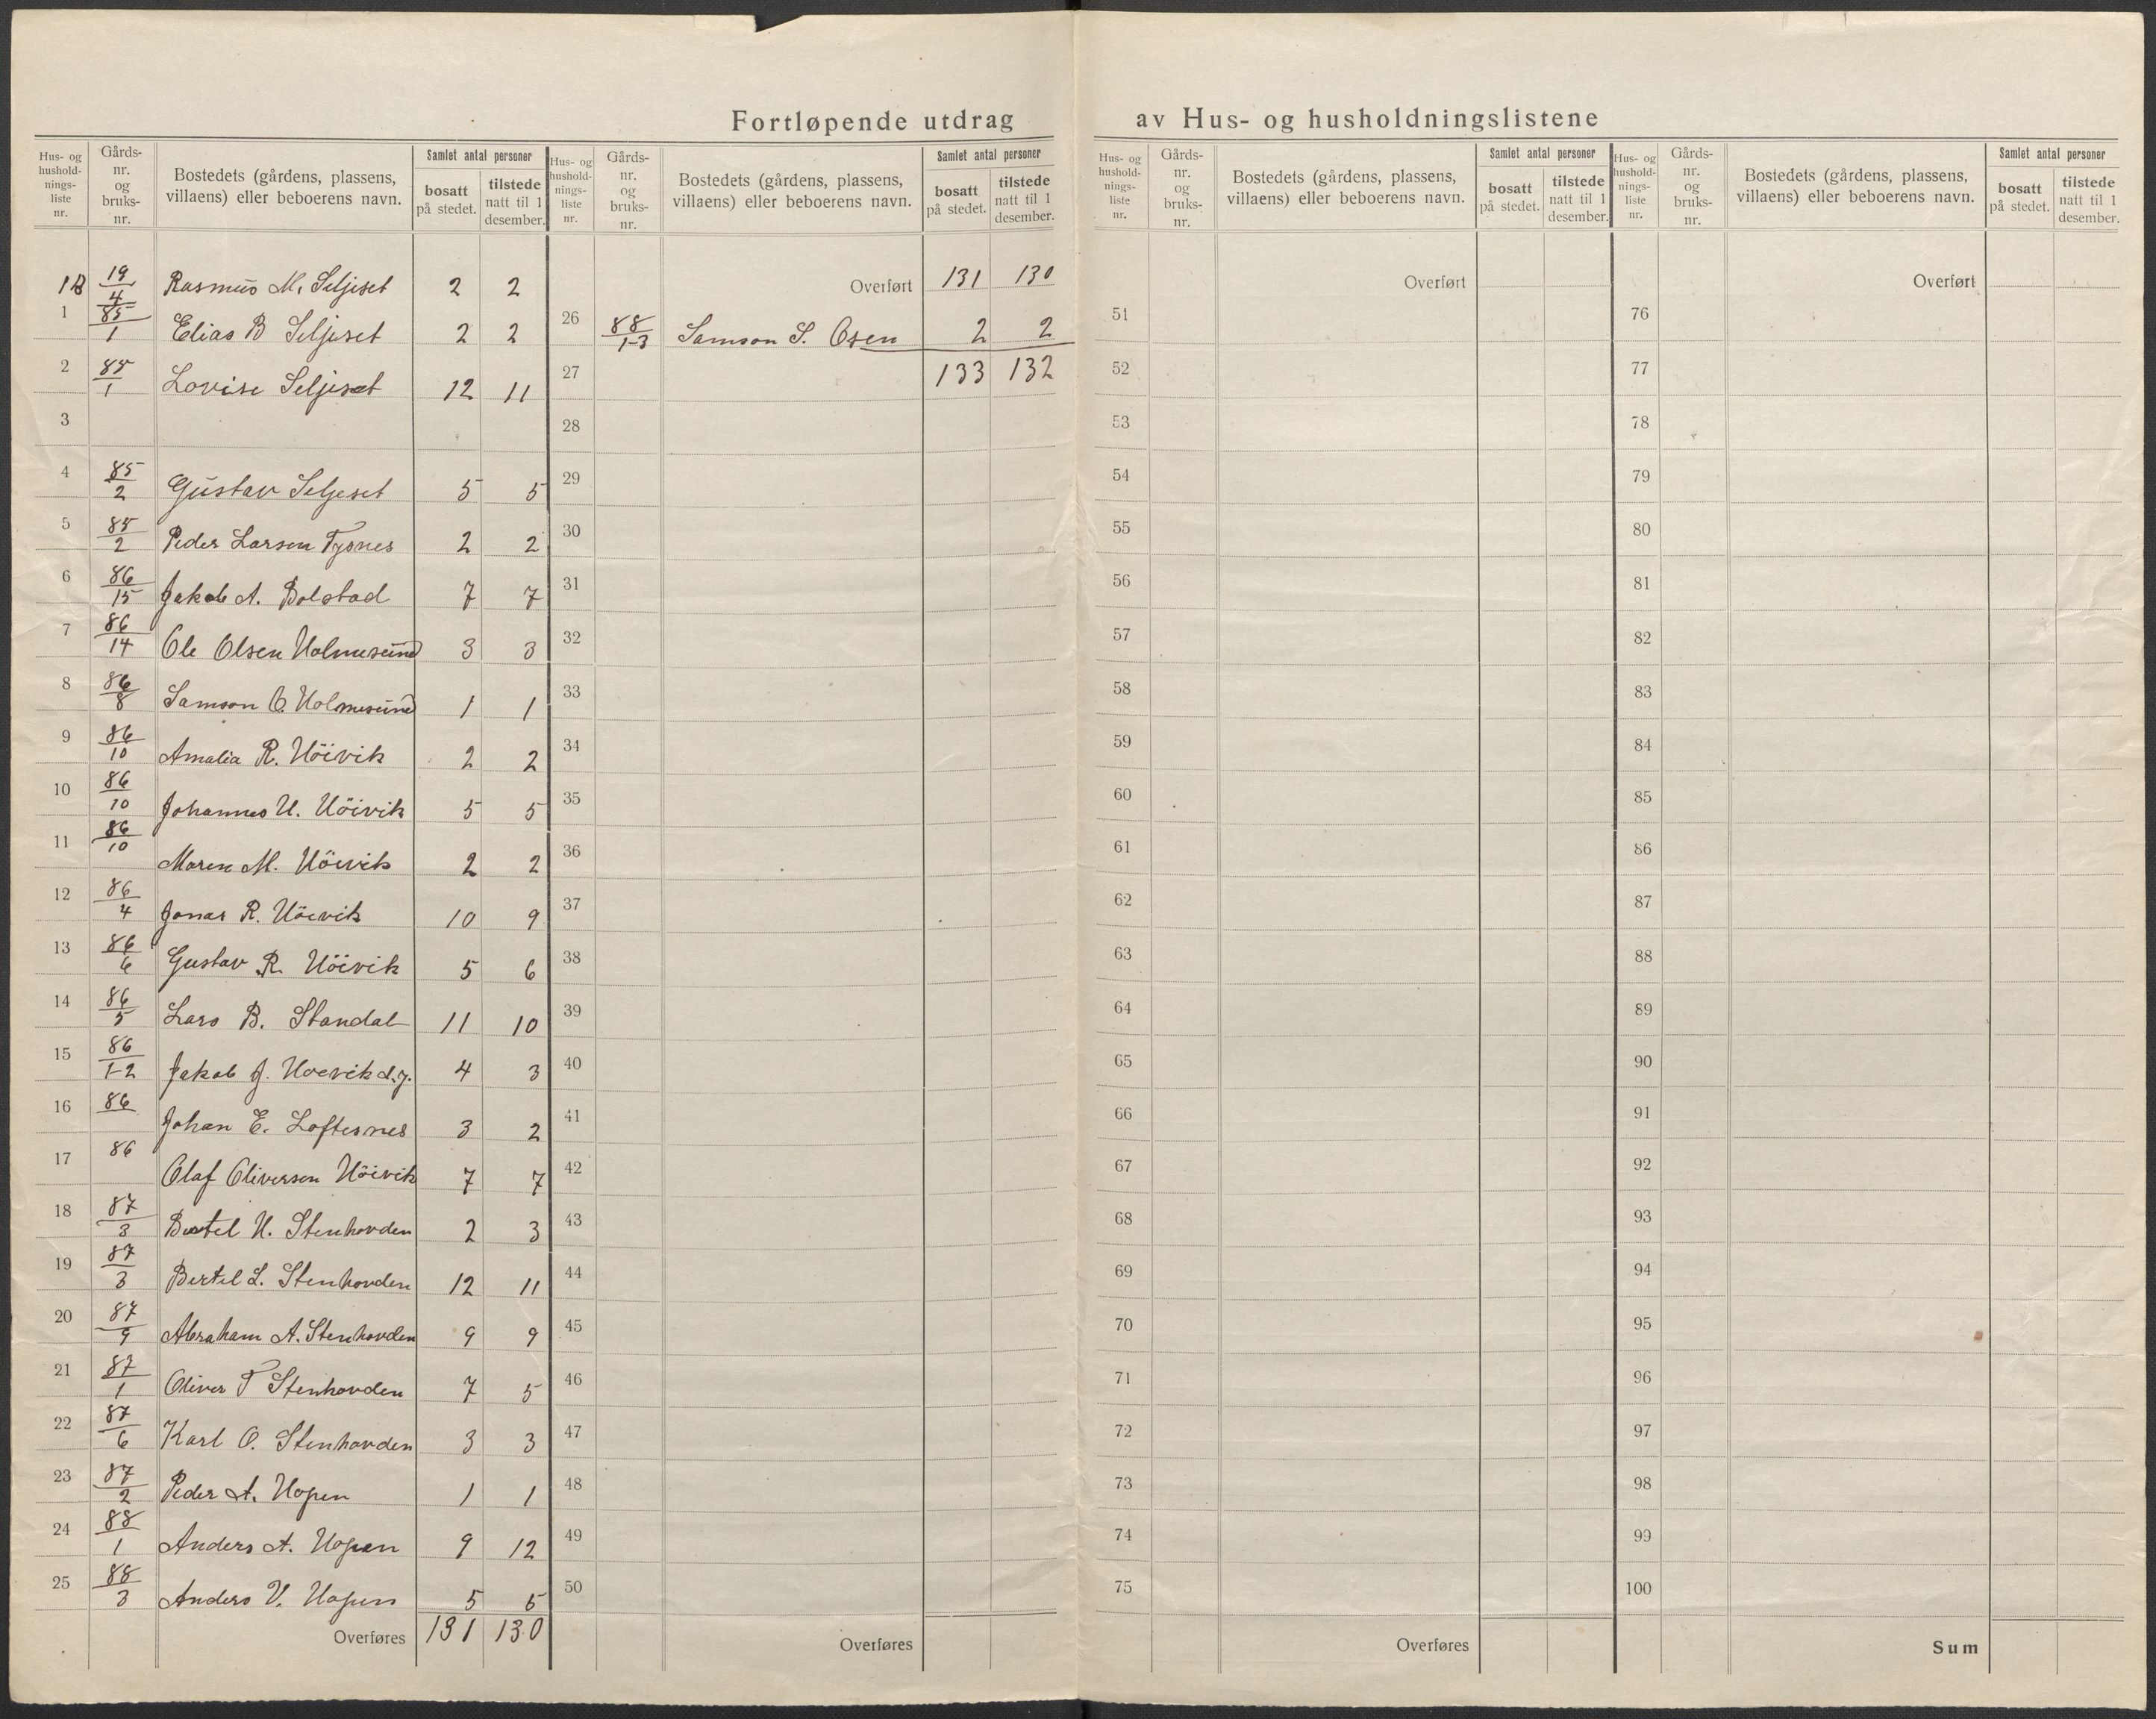 Fortløpende utdrag av Hus- og husholdningslistene
Hus- og hushold- nings- liste nr.
Gårds- nr. og bruks- nr.
Bostedets (gårdens, plassens, villaens) eller beboerens navn.
Samlet antal personer
bosatt på stedet.
tilstede natt til 1 desember.
19/4 Rasmus M. Seljeset 2 2
1 85/1 Elias B Seljeset 2 2
2 85/1 Lovise Seljeset 12 11
3
4 85/2 Gustav Seljeset 5 5
5 85/2 Peder Larsen Tysnes 2 2
6 86/15 Jakob A. Bolstad 7 7
7 86/14 Ole Olsen Holmesund 3 3
8 86/8 Samson O. Holmesund 1 1
9 86/10 Amalia R. Höivik 2 2
10 86/10 Johannes H. Höivik 5 5
11 86/10 Maren M. Höivik 2 2
12 86/4 Jonas R. Höivik 10 9
13 86/6 Gustav R. Höivik 5 6
14 86/5 Lars B. Standal 11 10
15 86/1-2 Jakob J. Hoevik d.y. 4 3
16 86 Johan E. Loftesnes 3 2
17 86 Olaf Oliversen Höivik 7 7
18 87/3 Bertel H. Stenhovden 2 3
19 87/3 Bertel L. Stenhovden 12 11
20 87/9 Abraham A. Stenhovden 9 9
21 87/1 Oliver T Stenhovden 7 5
22 87/6 Karl O. Stenhovden 3 3
23 87/2 Peder A. Hopen 1 1
24 88/1 Anders A. Hopen 9 12
25 88/3 Anders V. Hopen 5 5
Overføres 131 130
Hus- og hushold- nings- liste nr.
Gårds- nr. og bruks- nr.
Bostedets (gårdens, plassens, villaens) eller beboerens navn.
Samlet antal personer
bosatt på stedet.
tilstede natt til 1 desember.
Overført 131 130
26 88/1-3 Samson S. Osen 2 2
27 133 132
28
29
30
31
32
33
34
35
36
37
38
39
40
41
42
43
44
45
46
47
48
49
50
Overføres
Hus- og hushold- nings- liste nr.
Gårds- nr. og bruks- nr.
Bostedets (gårdens, plassens, villaens) eller beboerens navn.
Samlet antal personer
bosatt på stedet.
tilstede natt til 1 desember.
Overført
51
52
53
54
55
56
57
58
59
60
61
62
63
64
65
66
67
68
69
70
71
72
73
74
75
Overføres
Hus- og hushold- nings- liste nr.
Gårds- nr. og bruks- nr.
Bostedets (gårdens, plassens, villaens) eller beboerens navn.
Samlet antal personer
bosatt på stedet.
tilstede natt til 1 desember.
Overført
76
77
78
79
80
81
82
83
84
85
86
87
88
89
90
91
92
93
94
95
96
97
98
99
100
Sum